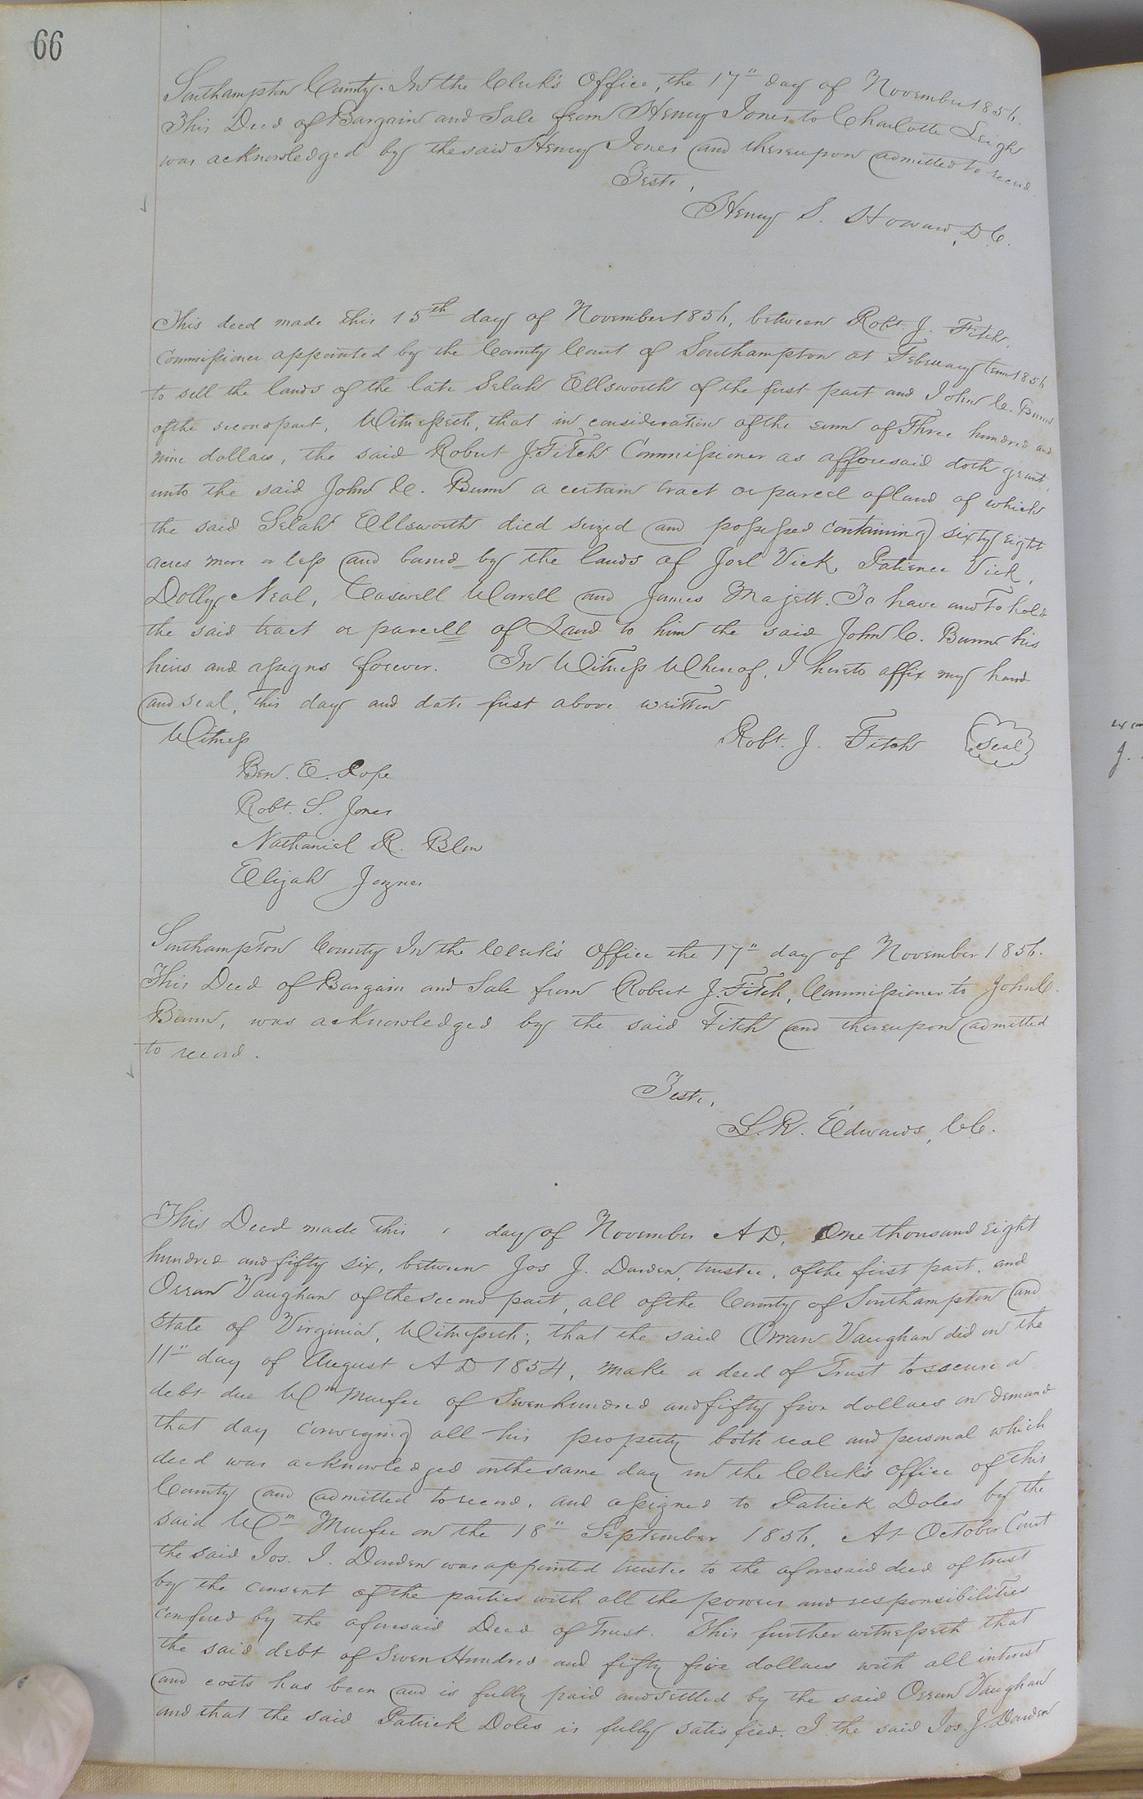 66
Southampton County. In the Clerk's Office, the 17" day of November 1856.
This Deed of Bargain and Sale from Henry Jones to Charlotte Leigh
was acknowledged by the said Henry Jones and thereupon admitted to record
Teste,
Henry S. Howard, D.C.
This deed made this 15th day of November 1856, between Robt. J. Fitch,
Commissioner appointed by the County Court of Southampton at February term 1856
to sell the lands of the late Selah Ellsworth of the first part and John C. Bunn
of the second part, Witnesseth, that in consideration of the sum of Three hundred and
nine dollars, the said Robert J. Fitch Commissioner as afforesaid doth grant
unto the said John C. Bunn a certain tract or parcel of land of which
the said Selah Ellsworth died seized and possessed containing sixty eight
acres more or less and bound by the lands of Joel Vick, Patience Vick,
Dolly Neal, Caswell Worrell and James Majett. To have and To hold
the said tract or parcell of Land to him the said John C. Bunn his
heirs and assigns forever. In Witness Whereof, I hereto affix my hand
and seal, this day and date first above written
Witness Robt. J. Fitch Seal
Ben. E. Pope
Robt. S. Jones
Nathaniel R. Blow
Elijah Joyner
Southampton County In the Clerk's Office the 17" day of November 1856.
This Deed of Bargain and Sale from Robert J. Fitch, Commissioner to John C.
Bunn, was acknowledged by the said Fitch and thereupon admitted
to record.
Teste,
L. R. Edwards, C.C.
This Deed made this day of November A D, One thousand eight
hundred and fifty six, between Jos J. Darden, trustee, of the first part, and
Orran Vaughan of the second part, all of the County of Southampton and
State of Virginia, Witnesseth; that the said Orran Vaughan did on the
11" day of August A D 1854, make a deed of Trust to secure a
debt due Wm Murfee of Seven hundred and fifty five dollars on demand
that day conveying all his property both real and personal which
deed was acknowledged on the same day in the Clerk's office of this
County and admitted to record, and assigned to Patrick Doles by the
said Wm Murfee on the 18" September 1856. At October Court
the said Jos. J. Darden was appointed trustee to the aforesaid deed of trust
by the consent of the parties with all the powers and responsibilities
confered by the aforesaid Deed of Trust. This further witnesseth that
the said debt of Seven Hundred and fifty five dollars with all interest
and costs has been and is fully paid and settled by the said Orran Vaughan
and that the said Patrick Doles is fully satisfied. I the said Jos. J. Darden